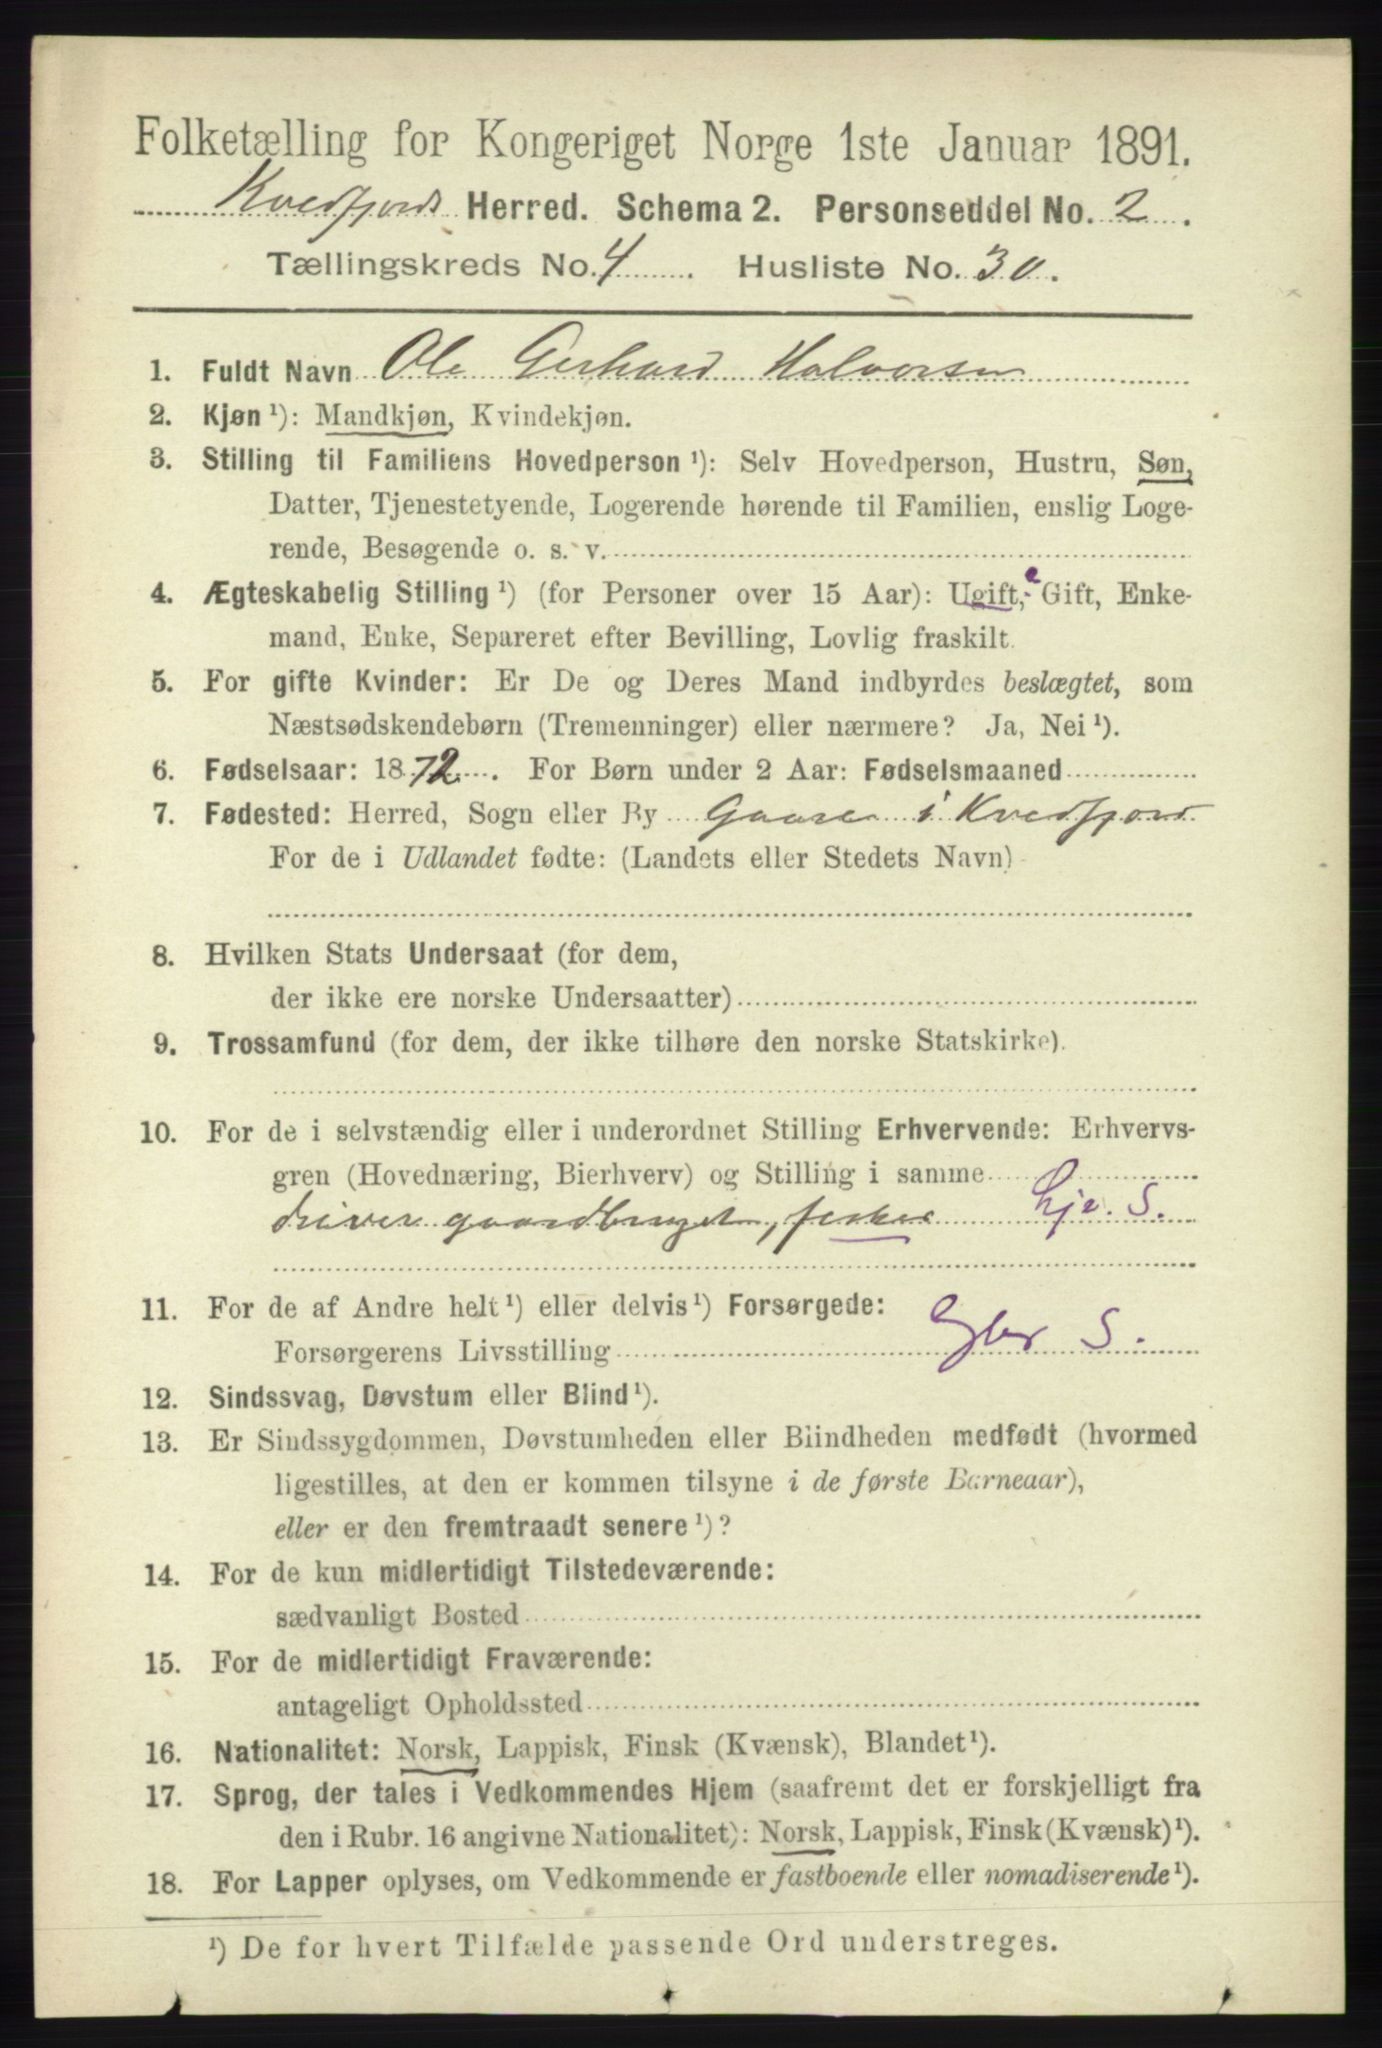 Folketælling for Kongeriget Norge 1ste Januar 1891.
Kvedfjords Herred. Schema 2. Personseddel No. 2.
Tællingskreds No. 4. Husliste No. 30.
1. Fuldt Navn Ole Gerhard Halvorsen
2. Kjøn ¹): Mandkjøn, Kvindekjøn.
3. Stilling til Familiens Hovedperson ¹): Selv Hovedperson, Hustru, Søn,
Datter, Tjenestetyende, Logerende hørende til Familien, enslig Loge-
rende, Besøgende o. s. v.
4. Ægteskabelig Stilling ¹) (for Personer over 15 Aar): Ugift, Gift, Enke-
mand, Enke, Separeret efter Bevilling, Lovlig fraskilt.
5. For gifte Kvinder: Er De og Deres Mand indbyrdes beslægtet, som
Næstsødskendebørn (Tremenninger) eller nærmere? Ja, Nei ¹).
6. Fødselsaar: 1872. For Børn under 2 Aar: Fødselsmaaned
7. Fødested: Herred, Sogn eller By Gaare i Kvedfjord
For de i Udlandet fødte: (Landets eller Stedets Navn)
8. Hvilken Stats Undersaat (for dem,
der ikke ere norske Undersaatter)
9. Trossamfund (for dem, der ikke tilhøre den norske Statskirke).
10. For de i selvstændig eller i underordnet Stilling Erhvervende: Erhvervs-
gren (Hovednæring, Bierhverv) og Stilling i samme
driver gaardbruget, fisker hje. S.
11. For de af Andre helt ¹) eller delvis ¹) Forsørgede:
Forsørgerens Livsstilling Gbr S.
12. Sindssvag, Døvstum eller Blind ¹).
13. Er Sindssygdommen, Døvstumheden eller Blindheden medfødt (hvormed
ligestilles, at den er kommen tilsyne i de første Barneaar),
eller er den fremtraadt senere ¹)?
14. For de kun midlertidigt Tilstedeværende:
sædvanligt Bosted
15. For de midlertidigt Fraværende:
antageligt Opholdssted
16. Nationalitet: Norsk, Lappisk, Finsk (Kvænsk), Blandet ¹).
17. Sprog, der tales i Vedkommendes Hjem (saafremt det er forskjelligt fra
den i Rubr. 16 angivne Nationalitet): Norsk, Lappisk, Finsk (Kvænsk) ¹).
18. For Lapper oplyses, om Vedkommende er fastboende eller nomadiserende ¹).
¹) De for hvert Tilfælde passende Ord understreges.